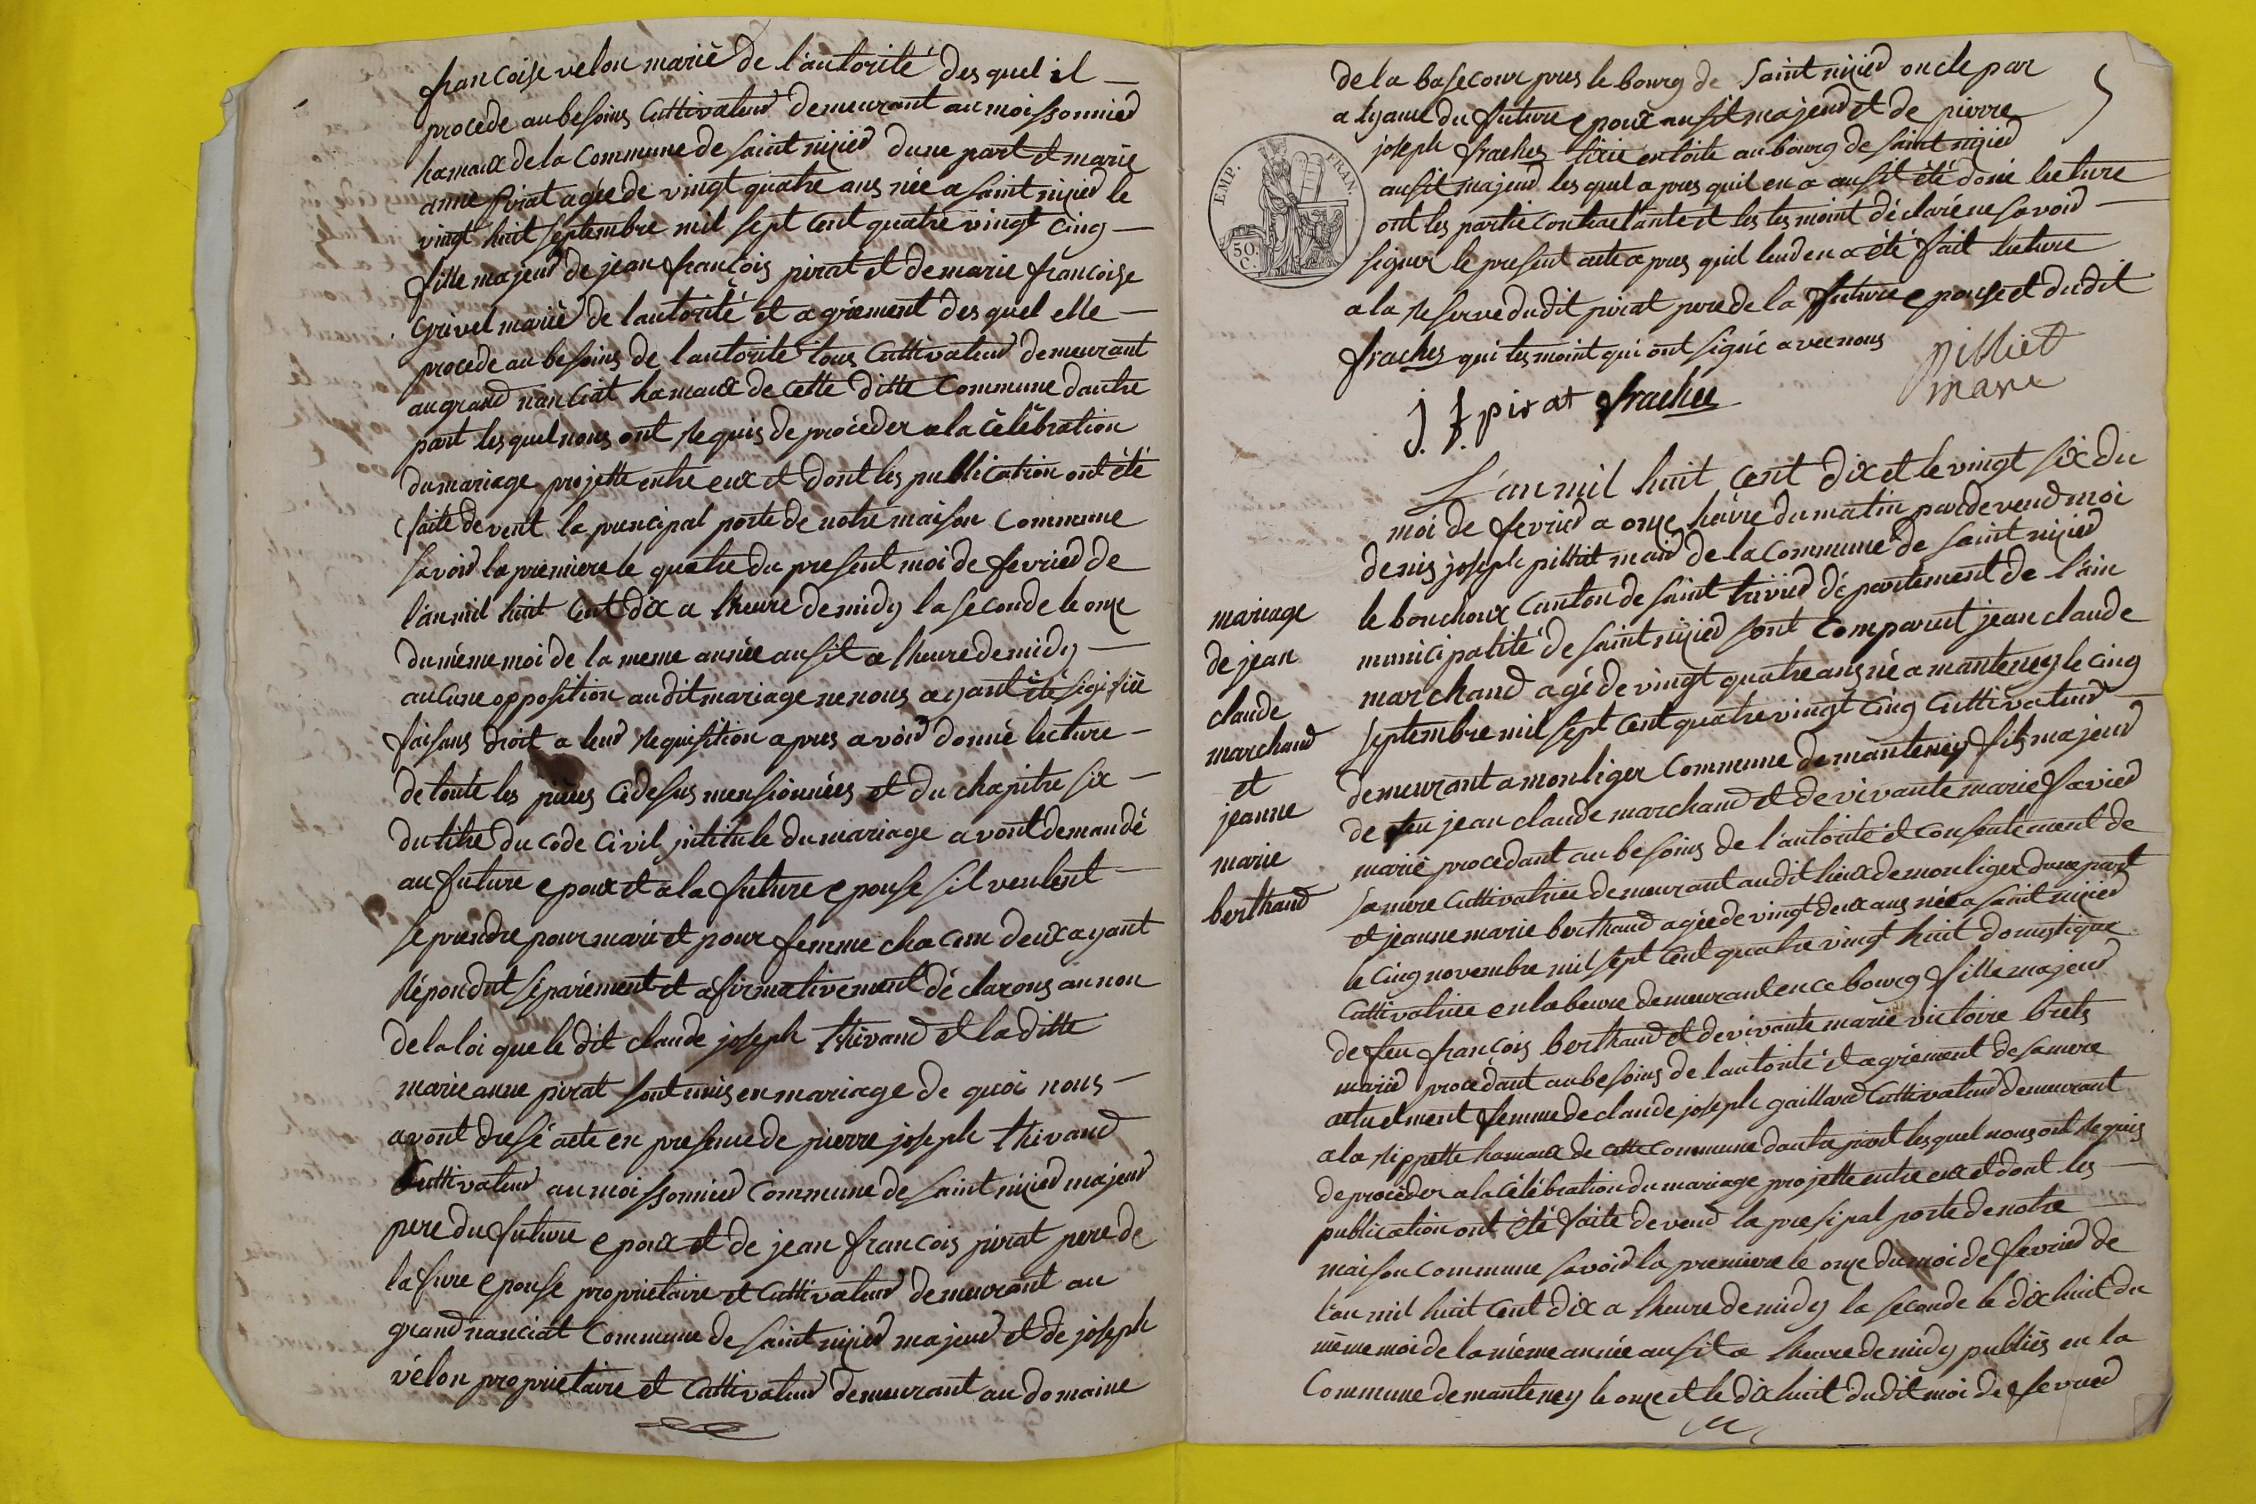 francoise velon marié de l'autorité des quel il —
procede au besoins Cultivateur demeurant au moissonnied
hamaux de la Commune de saint nizied dune part et marie
anne pirat agée de vingt quatre ans née a saint nizied le
vingt huit septembre mil sept cent quatre vingt cinq —
fille majeur de jean françois pirat et de marie francoise
Grivel marié de lautorité et agrément des quel elle —
procede au besoins de l'autorité tous Cultivateur demeurant
au grand nanciat hamaux de cette ditte Commune dautre
part les quel nous ont requis de procéder a la célébration
du mariage projette entre eux et dont les publication ont été
faite devent la principal porte de notre maison Commune
savoir la premiere le quatre du present moi de fevried de
l'an mil huit cent dix a lheure de midy la seconde le onze
du mème moi de la meme année ausit a lheure de midy —
aucune opposition audit mariage ne nous ayant été sigifiié
faisans droit a leur requisition apres avoir donné lecture —
de toute les pièces cidesus mensionnées et du chapitre six —
du titre du code Civil intitule du mariage avont demandé
au future epoux et a la future epouse sil veulent —
se prendre pour mari et pour femme chacun deux ayant
répondut séparément et afirmativement déclarons au non
de la loi que le dit claude joseph thivand et la ditte
marie anne pirat sont unis en mariage de quoi nous —
avont dresé acte en presence de pierre joseph thivand
Cultivateur au moissonnied Commune de saint nizied majeur
pere du future epoux et de jean francois pirat pere de
la fure epouse propriétaire et Cultivateur demeurant au
grand nanciat Commune de saint nizied majeur et de joseph
vélon propriétaire et Cultivateur demeurant au domaine
de la basecour pres le bourg de saint nizied oncle par
alyance du future epoux ausit majeur et de pierre
joseph fraches tixie en toile au bourg de saint nizied
ausit majeur les quel apres quil en a ausit été doné lecture
ont les partie contractante et les tesmoint déclaré ne savoir —
signer le present acte apres quil leur en a été fait lecture
a la reserve dudit pirat pere de la future epouse et dudit
fraches qui tesmoint qui ont signé avec nous
pilliet
mare
j. f. pirat frachee
EMP. FRAN.
50 C.
L'an mil huit cent dix et le vingt six du
moi de fevried a onze heure du matin pardevend moi
denis joseph pilliat maid de la Commune de saint nizied
le bouchoux Canton de saint trivied département de l'ain
municipalité de saint nizied sont Comparut jean claude
marchand agé de vingt quatre ans né a manteney le cinq
septembre mil sept cent quatre vingt cinq Cultivateur —
demeurant a monliger Commune de manteney fils majeur
de feu jean claude marchand et de vivante marie favied
marié procedant au besoins de l'autorité et consentement de
sa mere Cultivatrice demeurant audit lieux de monliger dune part
et jeanne marie berthaud agée de vingt deux ans née a saint nizied
le cinq novembre mil sept cent quatre vingt huit domestique
Cultivatrice en labeure demeurant en ce bourg fille majeur
de feu françois berthaud et de vivante marie victoire brets
marié procédant au besoins de lautorité et agrément de sa mere
actuelment femme de claude joseph gaillard Cultivateur demeurant
a la rippette hamaux de cette Commune dautre part lesquel nous ont requis
de procéder a la célébration du mariage projette entre eux et dont les —
publication ont été faite devend la presipal porte de notre —
maison commune savoir la premiere le onze du moi de fevried de
l'an mil huit cent dix a lheure de midy la seconde le dix huit du
mème moi de la mème année ausit a lheure de midy publiés en la
Commune de manteney le onze et le dix huit dudit moi de fevried
mariage
de jean
claude
marchand
et
jeanne
marie
berthaud